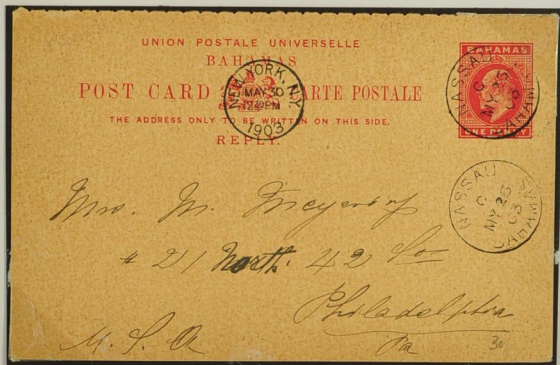 UNION POSTALE UNIVERSELLE
BAHAMAS
POST CARD CARTE POSTALE
THE ADDRESS ONLY TO BE WRITTEN ON THIS SIDE.
REPLY.
NEW YORK, N.Y.
MAY 30
12
PM
1903
BAHAMAS
ONE PENNY
NASSAU
C
MY 26
03
BAHAMAS
NASSAU
C
MY 26
03
BAHAMAS
Mrs. M.
# 21 North. 42
Philadelphia
Pa
U. S. A
30